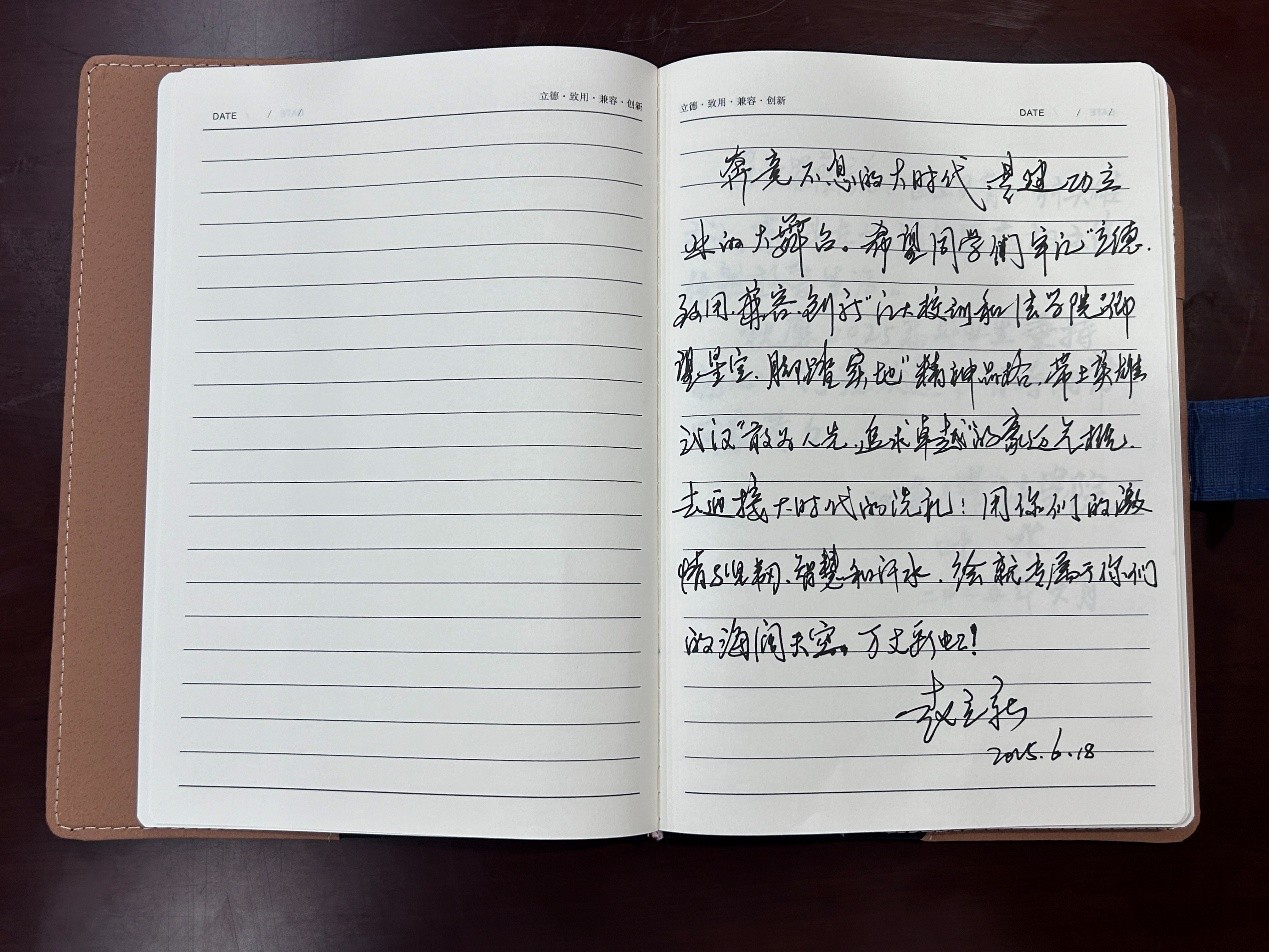 立德·致用·兼容·创新
DATE / /
立德·致用·兼容·创新
DATE / /
奔竞不息的大时代,是建功立
业的大舞台。希望同学们牢记"立德.
致用.兼容.创新"江大校训和法学院"仰
望星空.脚踏实地"精神品格,带上英雄
武汉"敢为人先,追求卓越"的豪迈气概,
去迎接大时代的洗礼!用你们的激
情与坚韧、智慧和汗水,绘就专属于你们
的海阔天空,万丈彩虹!
2025.6.18